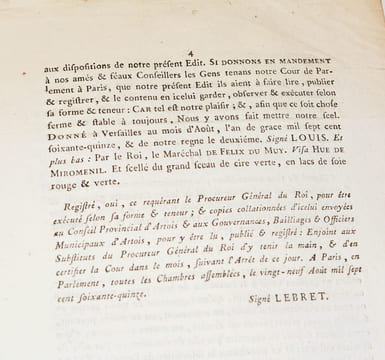 4
aux dispositions de notre préſent Edit. SI DONNONS EN MANDEMENT
à nos amés & féaux Conſeillers les Gens tenans notre Cour de Par-
lement à Paris, que notre préſent Edit ils aient à faire lire, publier
& regiſtrer, & le contenu en icelui garder, obſerver & exécuter ſelon
ſa forme & teneur : CAR tel eſt notre plaiſir ; & , afin que ce ſoit choſe
ferme & ſtable à toujours, Nous y avons fait mettre notre ſcel.
DONNÉ à Verſailles au mois d'Août, l'an de grace mil ſept cent
ſoixante-quinze, & de notre regne le deuxième. Signé LOUIS. Et
plus bas : Par le Roi, le Maréchal DE FELIX DU MUY. Viſa HUE DE
MIROMENIL. Et ſcellé du grand ſceau de cire verte, en lacs de ſoie
rouge & verte.
Regiſtré, oui, ce requérant le Procureur Général du Roi, pour être
exécuté ſelon ſa forme & teneur ; & copies collationnées d'icelui envoyées
au Conſeil Provincial d'Artois & aux Gouvernances, Bailliages & Officiers
Municipaux d'Artois, pour y être lu, publié & regiſtré : Enjoint aux
Subſtituts du Procureur Général du Roi d'y tenir la main, & d'en
certifier la Cour dans le mois, ſuivant l'Arrêt de ce jour. A Paris, en
Parlement, toutes les Chambres aſſemblées, le vingt-neuf Août mil ſept
cent ſoixante-quinze.
Signé LEBRET.